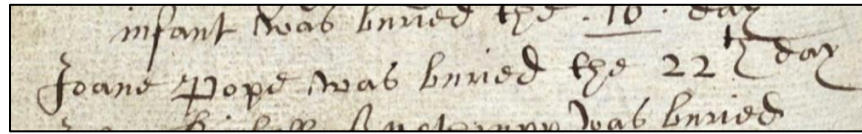 infant was buried the . 10 . day
Joane Pope was buried the 22th day
was buried